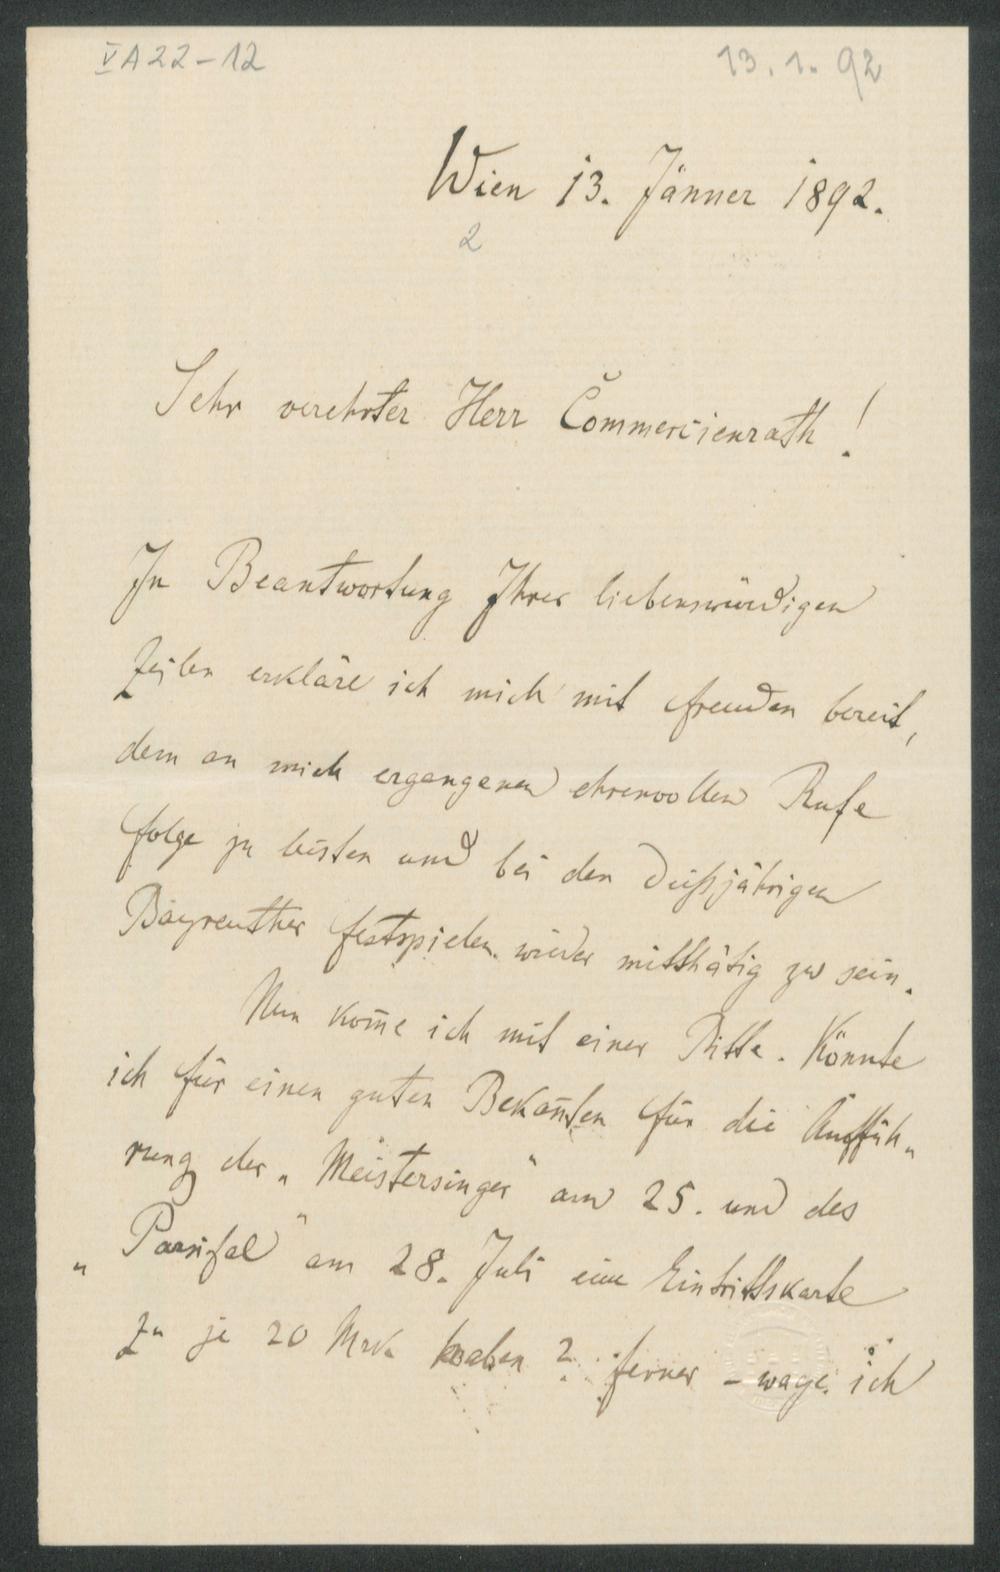 VA22-12
13.1.92
Wien 13. Jänner 1892.
2
Sehr verehrter Herr Commercienrath!
In Beantwortung Ihrer liebenswürdigen
Zeilen erkläre ich mich mit Freuden bereit,
dem an mich ergangenen ehrenvollen Rufe
Folge zu leisten und bei den dießjährigen
Bayreuther Festspielen wieder mitthätig zu sein.
Nun kom̄e ich mit einer Bitte. Könnte
ich für einen guten Bekan̄ten für die Auffüh„
rung der „Meistersinger" am 25. und des
„Parsifal" am 28. Juli eine Eintrittskarte
zu je 20 Mrk. haben? Ferner – wage ich